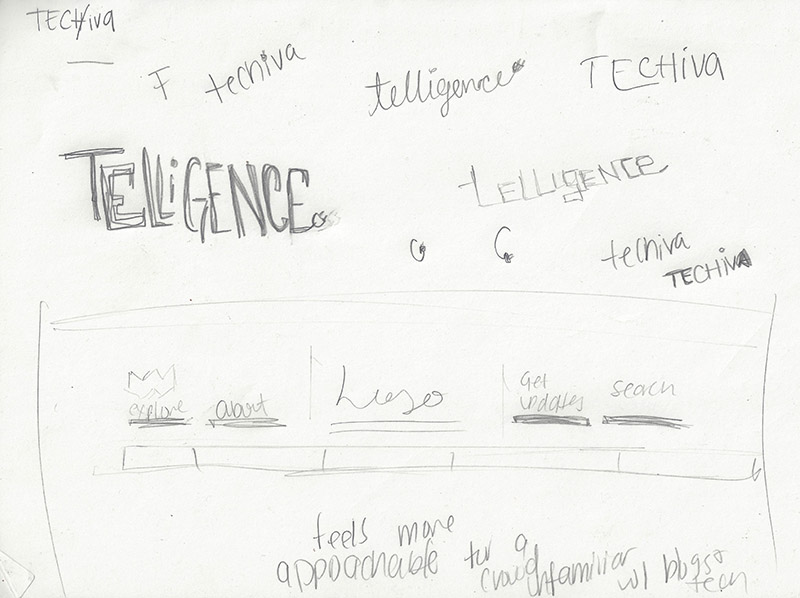 TECHiva
F techiva
telligence
TECHiva
TELLiGENCE
tELLIgENCe
techiva
TECHIVA
explore
about
Get
updates
search
feels more
approachable for a
crowd unfamiliar
w/ blogs +
tech